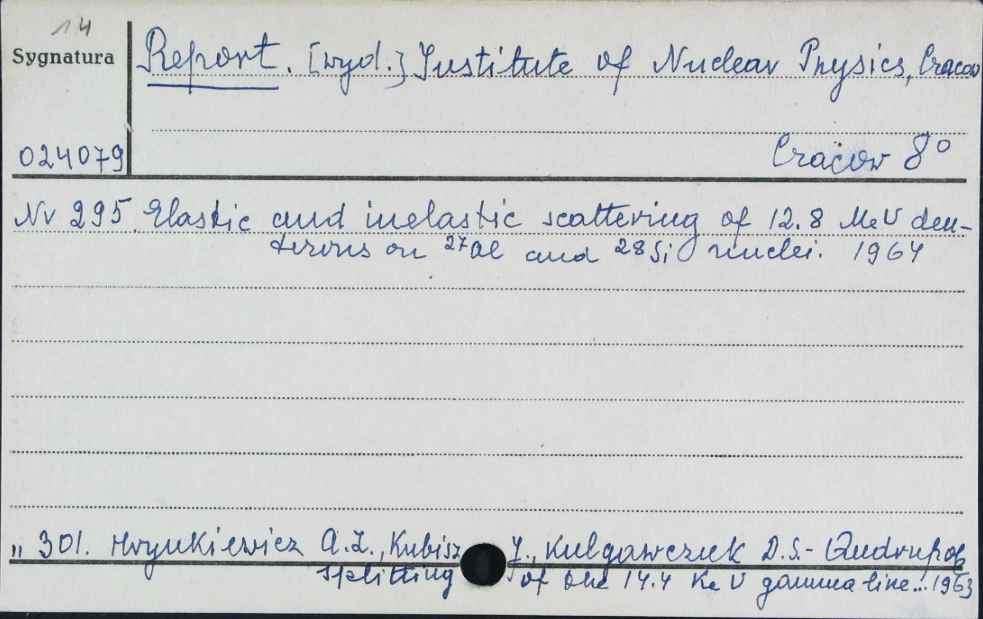 14
Sygnatura
Report. [wyd.] Institute of Nuclear Physics, Cracow
024079
Cracow 8°
Nr 295. Elastic and inelastic scattering of 12.8 MeV deu-
terons on 27Al and 28Si nuclei. 1964
„ 301. Hrynkiewicz A.Z., Kubisz J., Kulgawczuk D.S.- Qudrupole
splitting of the 14.4 KeV gamma line... 1963